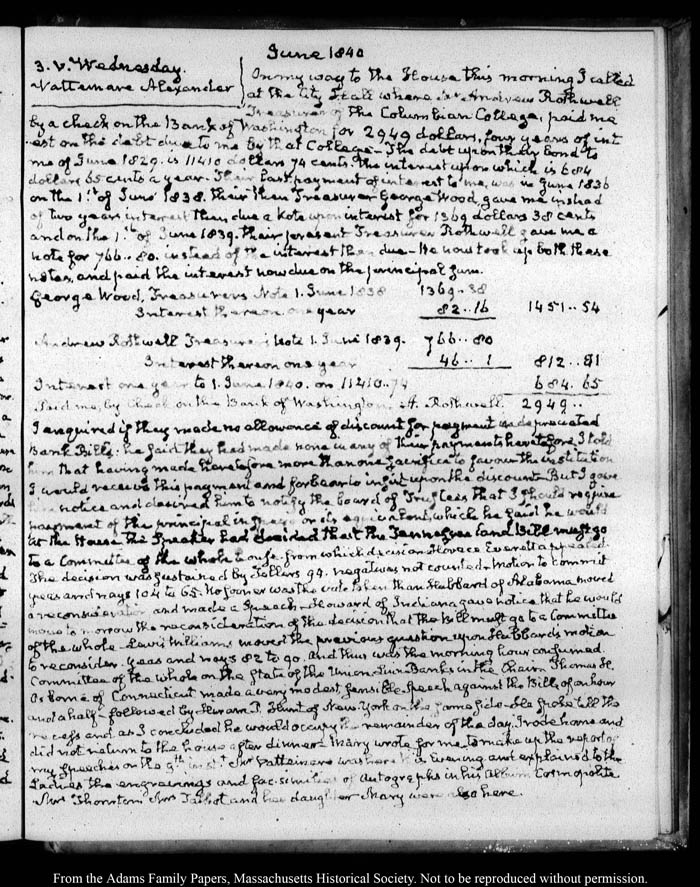 June 1840
3. V. Wednesday.
Vattemare Alexander
On my way to the House this morning I called
at the City Hall where Mr Andrew Rothwell
Treasurer of the Columbian College, paid me
by a check on the Bank of Washington for 2949 dollars, four years of int
est on the debt due to me by that College - The debt upon their bond to
me of June 1829. is 11410 dollars 74 cents. the interest upon which is 684
dollars 65 cents a year. Their last payment of interest to me, was in June 1836
on the 1.st of June 1838. their then Treasurer George Wood, gave me instead
of two years interest then due a Note upon interest for 1369 dollars 38 cents
and on the 1.st of June 1839. their present Treasurer Rothwell gave me a
note for 766..80. instead of the interest then due - He now took up both these
notes, and paid the interest now due on the principal sum.
George Wood, Treasurers Note 1. June 1838 1369..38
Interest thereon one year 82..16 1451..54
Andrew Rothwell Treasurer's Note 1. June 1839. 766..80
Interest thereon one year 46..1 812..81
Interest one year to 1. June 1840. on 11410..74 684.65
Paid me, by Check on the Bank of Washington, A. Rothwell. 2949..
I enquired if they made no allowance of discount for payment in depreciated
Bank Bills. he said they had made none in any of their payments heretofore. I told
him that having made heretofore more than one sacrifice to favour the institution
I would receive this payment and forbear to insist upon the discount - But I gave
him notice and desired him to notify the board of Trustees that I should require
payment of the principal in specie or its equivalent, which he said he would
At the House the Speaker had decided that the Tennessee Land Bill must go
to a Committee of the whole house, from which decision Horace Everett appealed.
The decision was sustained by Tellers 94. negatives not counted - Motion to commit
yeas and nays 104 to 65. No sooner was the vote taken than Hubbard of Alabama moved
a reconsideration and made a Speech - Howard of Indiana gave notice that he would
move tomorrow the reconsideration of the decision that the Bill must go to a Committee
of the whole - Lewis Williams moved the previous question upon Hubbard's motion
to reconsider. yeas and nays 82 to 90. And thus was the morning hour consumed.
Committee of the whole on the State of the Union. Linn Banks in the Chair. Thomas B.
Osborne of Connecticut made a very modest, sensible Speech against the Bill, of an hour
and a half - followed by Hiram P. Hunt of New York on the same side - He spoke till the
recess and as I concluded he would occupy the remainder of the day. I rode home and
did not return to the house after dinner. Mary wrote for me to make up the report of
my Speeches on the 9th Mr Vattemare was here this Evening and explained to the
Ladies the engravings and fac-similes of autographs in his Album Cosmopolite
Mrs Thornton Mrs Talbot and her daughter Mary were also here.
From the Adams Family Papers, Massachusetts Historical Society. Not to be reproduced without permission.